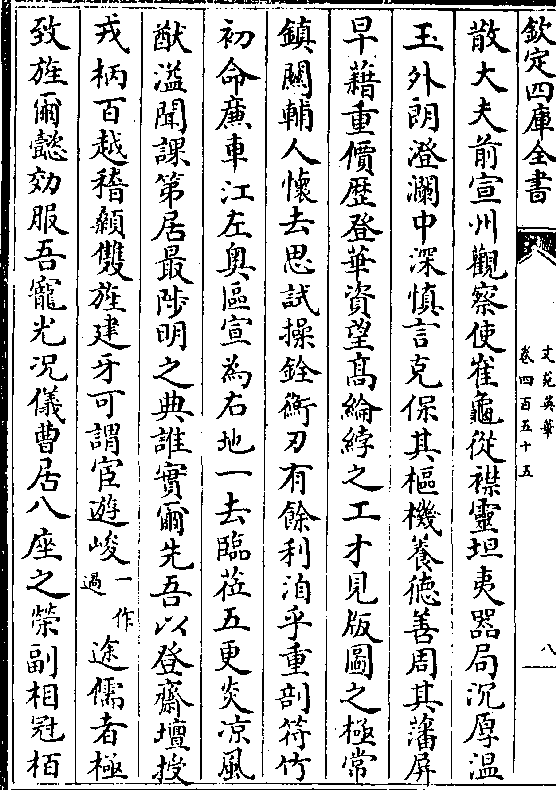 欽定四庫全書
文苑英華
卷四百五十五
八
散大夫前宣州觀察使崔龜從襟靈坦夷器局沉厚温
玉外朗澄瀾中深慎言克保其樞機養徳善周其藩屏
早藉重價歴登華資望髙綸綍之工才見版圖之極常
鎮闗輔人懷去思試操銓衡刃有餘利洎乎重剖符竹
初命廉車江左奥區宣為右地一去臨蒞五更炎凉風
猷溢聞課第居最陟明之典誰實爾先吾以登齋壇授
戎柄百越稽顙雙旌建牙可謂宦遊峻一作過途儒者極
致旌爾懿効服吾寵光况儀曹居八座之榮副相冠栢